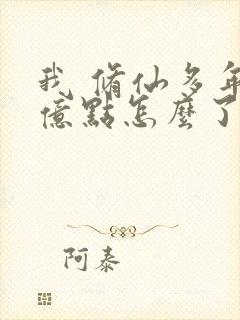 我 脩仙多年
億點怎麼了
阿泰